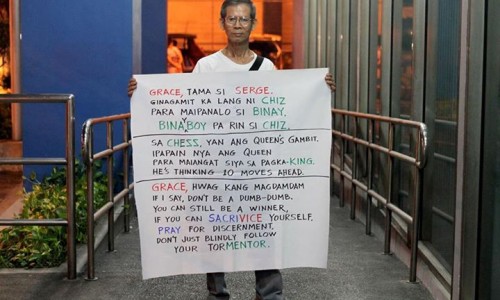 GRACE, TAMA SI SERGE.
GINAGAMIT KA LANG NI CHIZ
PARA MAIPANALO SI BINAY.
BINAYBOY PA RIN SI CHIZ.
SA CHESS, YAN ANG QUEEN'S GAMBIT.
IPAPAIN NYA ANG QUEEN
PARA MAIANGAT SIYA SA PAGKA-KING.
HE'S THINKING 10 MOVES AHEAD.
GRACE, HWAG KANG MAGDAMDAM
IF I SAY, DON'T BE A DUMB-DUMB.
YOU CAN STILL BE A WINNER,
IF YOU CAN SACRIVICE YOURSELF.
PRAY FOR DISCERNMENT.
DON'T JUST BLINDLY FOLLOW
YOUR TORMENTOR.